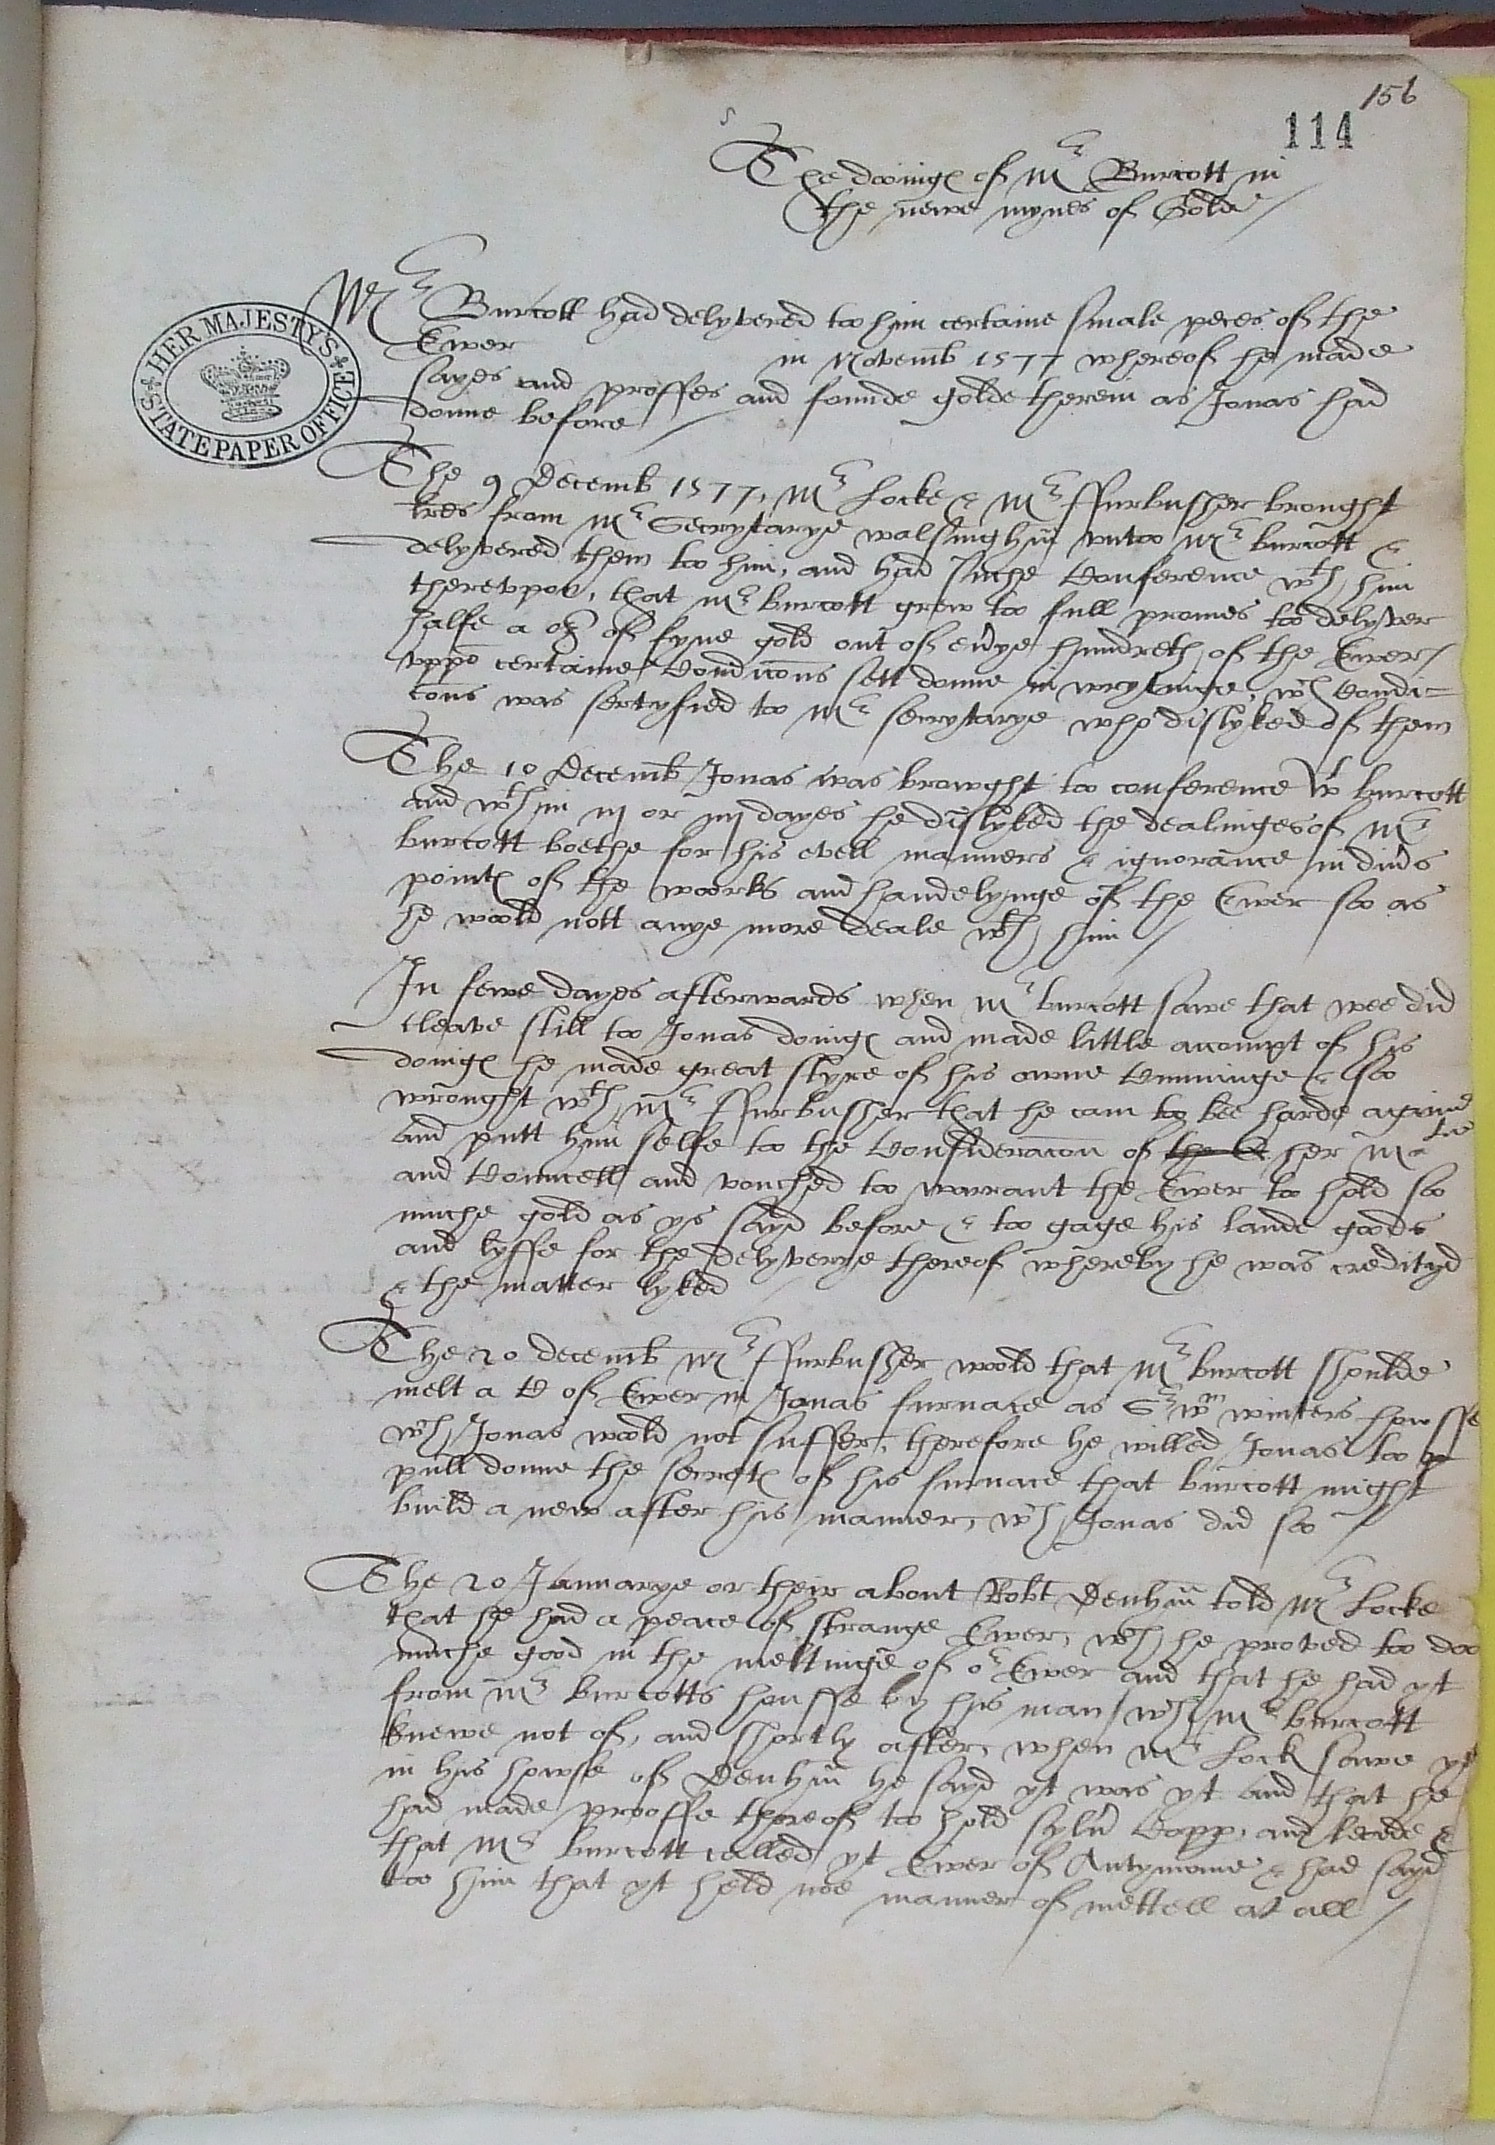 156
114
The dooinges of Mr Burcott in
the newe mynes of Golde
Mr Burcott had delyvered too him certaine smale peces of the
Ewer in Novemb 1577 whereof he made
sayes and prooffes and founde golde therein as Jonas had
donne before
HER MAJESTY'S
STATE PAPER OFFICE
The 9 Decemb 1577, Mr Locke & Mr ffurbusher brought
lres from Mr Secrytarye walsinghm untoo Mr burcott &
delyvered them too him, and had suche Conference wth him
thereupon, that Mr burcott grew too full promes too delyver
halfe a oz of fyne gold out of evrye hundreth of the Ewer
uppo certaine Condicons sett donne in wrytinge, wch Condi=
cons was sertyfied too Mr secrytarye who dislyked of them
The 10 Decemb Jonas was browght too conference wt burcott
and wthin iij or iiij dayes he dislyked the dealinges of Mr
burcott boethe for his evell manners & ignorance in divrs
pointes of the woorks and handelynge of the Ewer soo as
he woold nott anye more deale wth him
In fewe dayes afterwards when Mr burcott sawe that wee did
cleave still too Jonas doinges and made little accompt of his
doinges he made great styre of his owne Cunninge & soo
wrought wth Mr ffurbusher that he cam too bee harde againe
and putt him selfe too the Consideracon of the her Matie
and Councell and vouched too warrant the Ewer too hold soo
muche gold as ys sayd before & too gage his lande goods
and lyffe for the delyverye thereof whereby he was credityd
& the matter lyked
The 20 decemb Mr ffurbusher woold that Mr burcott shoulde
melt a C of Ewer in Jonas furnace as Sr Wm winters howsse
wch Jonas woold not suffer, therefore he willed Jonas too
pull donne the secretes of his furnace that burcott might
build a new after his manner, wch Jonas did soo
The 20 Januarye or their about Robt Denhm told Mr Locke
that he had a peace of strange Ewer, wch he proved too doo
muche good in the meltinge of or Ewer and that he had yt
from Mr burcotts housse by his man wch Mr burcott
knewe not of, and shortly after, when Mr Lock sawe yt
in his howse of Denhm he sayd yt was yt and that he
had made prooffe thereof too hold sylvr Copp, and leede &
that Mr burcott called yt Ewer of Antymonie & had sayd
too him that yt held noe manner of mettell at all